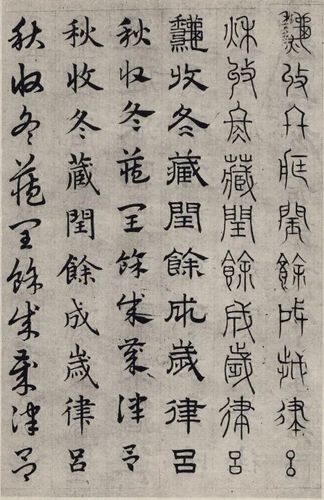 龝收冬藏閏餘成歲律呂
秌收冬藏閏餘成歲律呂
龝收冬藏閏餘成歲律呂
秋收冬藏閏餘成歲律呂
秋收冬藏閏餘成歲律呂
秋收冬藏閏餘成歲律呂